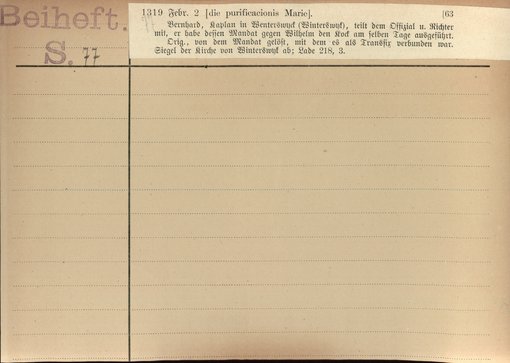 Beiheft.
S. 77
1319 Febr. 2 [die purificacionis Marie]. [63
Bernhard, Kaplan in Wenterswyk (Winterswyk), teilt dem Offizial u. Richter
mit, er habe dessen Mandat gegen Wilhelm den Kock am selben Tage ausgeführt.
Orig., von dem Mandat gelöst, mit dem es als Transfix verbunden war.
Siegel der Kirche von Winterswyk ab; Lade 218, 3.